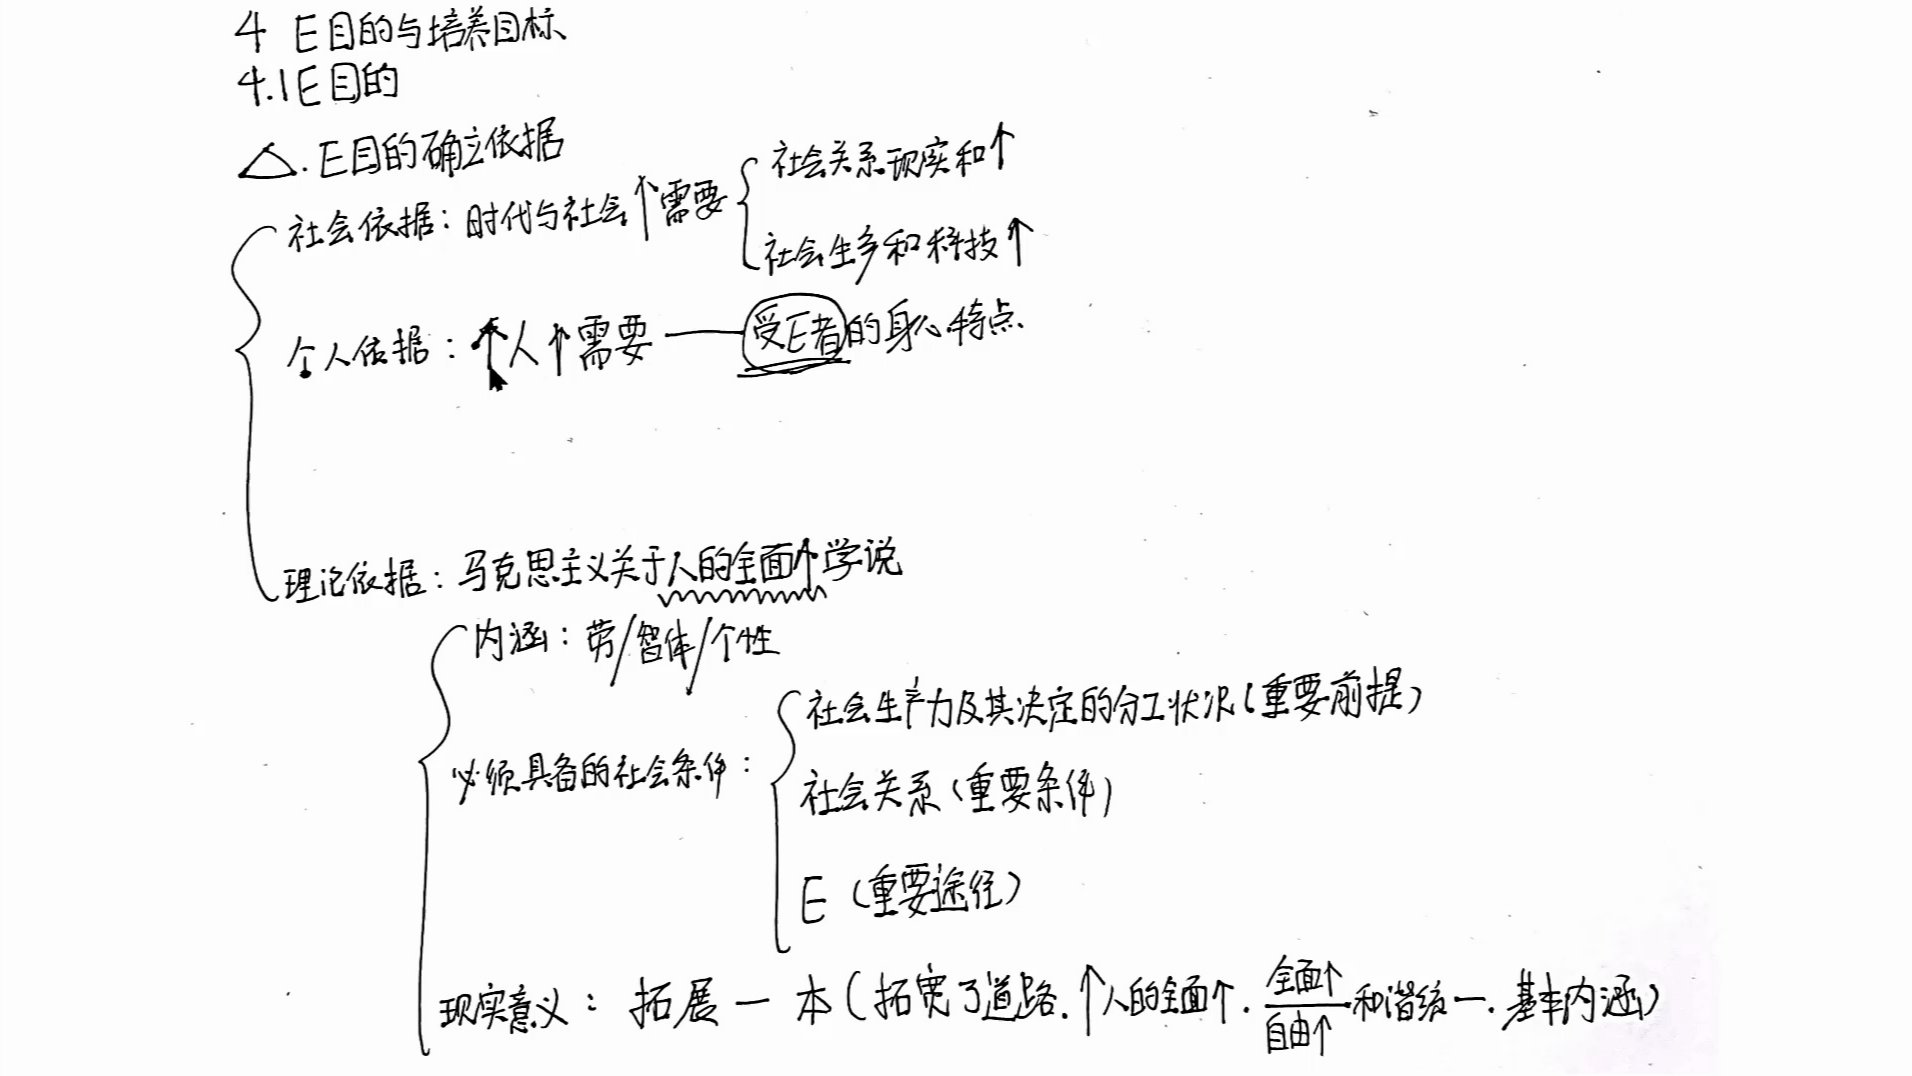 4 E目的与培养目标
4.1E目的
△.E目的确立依据
社会依据：时代与社会↑需要
社会关系现实和↑
社会生乡和科技↑
个人依据：↑人↑需要——受E者的身心特点
理论依据：马克思主义关于人的全面↑学说
内涵：劳/智体/个性
必须具备的社会条件：
社会生产力及其决定的分工状况（重要前提）
社会关系（重要条件）
E（重要途径）
现实意义：拓展一本（拓宽了道路.↑人的全面↑.全面↑/自由↑和谐统一.基本内涵）